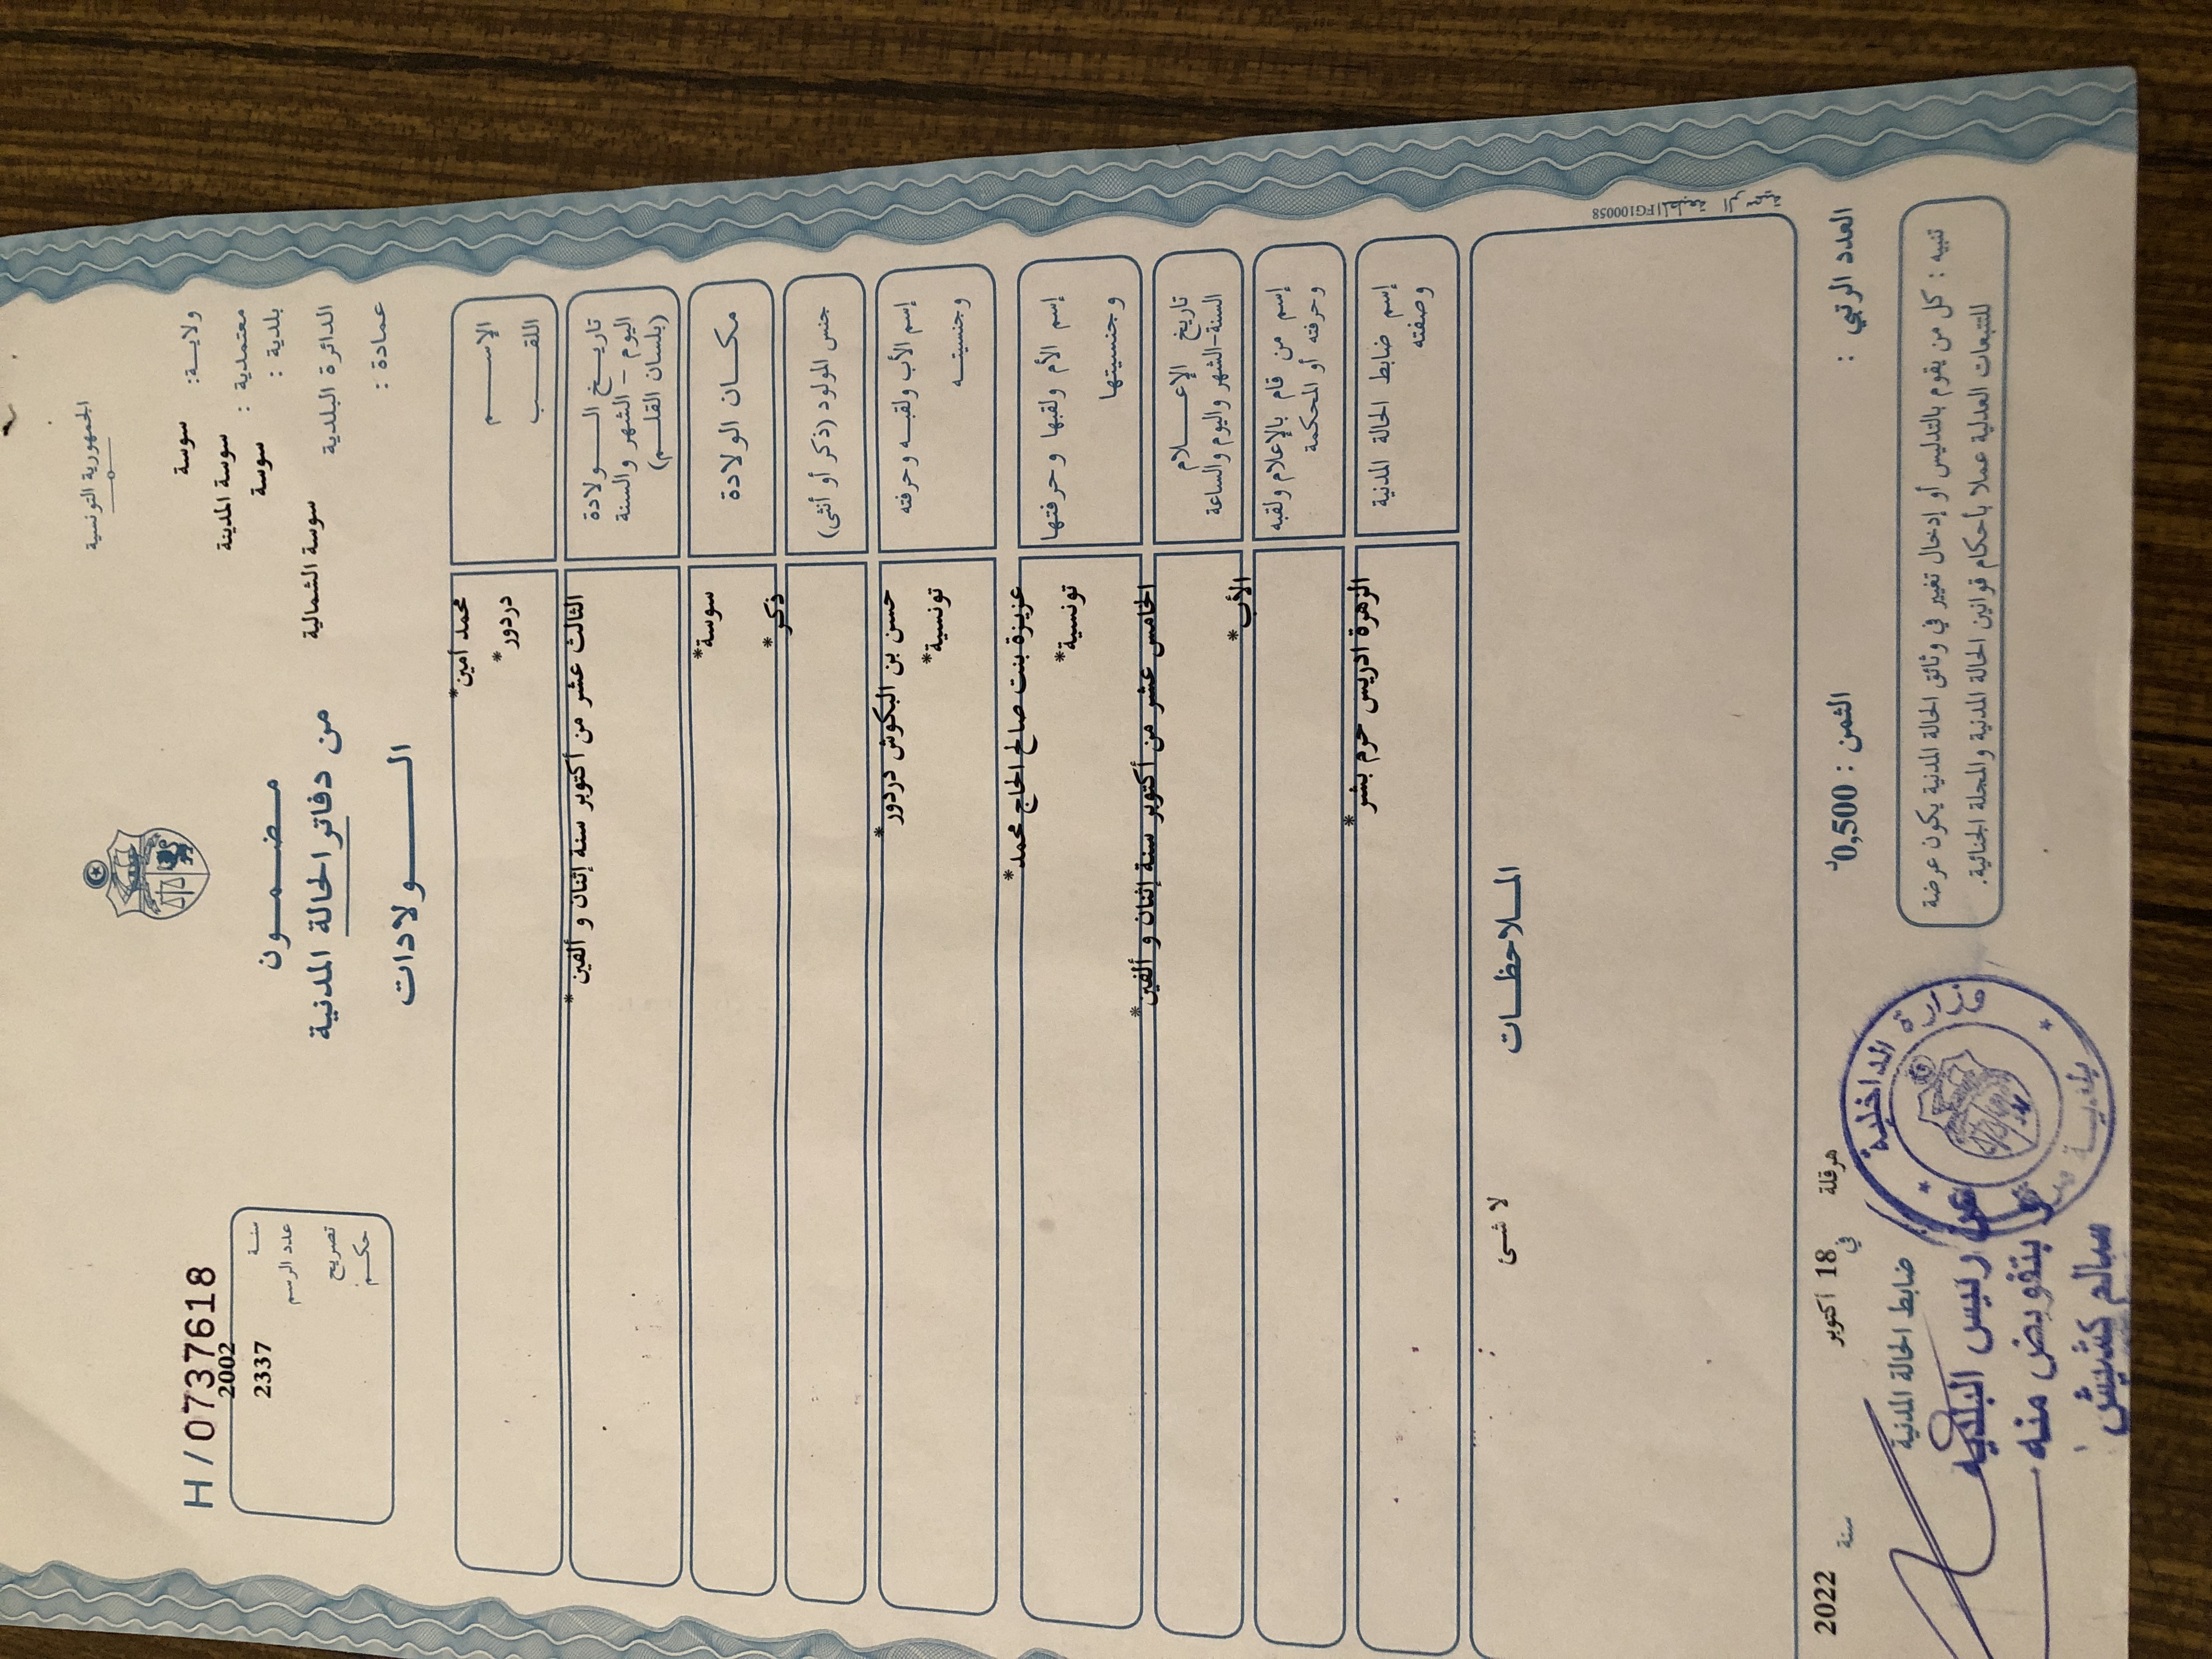 الجمهورية التونسية
ولاية: سوسة
معتمدية : سوسة المدينة
بلدية : سوسة
الدائرة البلدية سوسة الشمالية
عمادة :
مضمون
من دفاتر الحالة المدنية
الولادات
H/07377618
سنة 2002
عدد الرسم 2337
تصريح
حكم
الإسم محمد امين*
اللقب دردور*
تاريخ الولادة
اليوم - الشهر والسنة
(بلسان القلم)
الثالث عشر من أكتوبر سنة إثنان و ألفين *
مكان الولادة سوسة*
جنس المولود (ذكر أو أنثى) ذكر *
إسم الأب ولقبه وحرفته حسن بن البكوش دردور*
وجنسيته تونسية*
إسم الأم ولقبها وحرفتها عزيزة بنت صالح الحاج محمد*
وجنسيتها تونسية*
تاريخ الإعلام
السنة-الشهر واليوم والساعة
الخامس عشر من أكتوبر سنة إثنان و ألفين*
إسم من قام بالإعلام ولقبه الأب*
وحرفته أو المحكمة
إسم ضابط الحالة المدنية الزهرة ادريس حرم بشر*
وصفته
الملاحظات
لا شئ :
FG100058 المطبعة الرسمية
العدد الرتبي :
الثمن : 0,500د
هرقلة في 18 أكتوبر سنة 2022
ضابط الحالة المدنية
تنبيه : كل من يقوم بالتدليس أو إدخال تغيير في وثائق الحالة المدنية يكون عرضة
للتتبعات العدلية عملا بأحكام قوانين الحالة المدنية والمجلة الجنائية.
وزارة الداخلية
بلدية
عن رئيس البلدية
و بتفويض منه
سالم كشيش